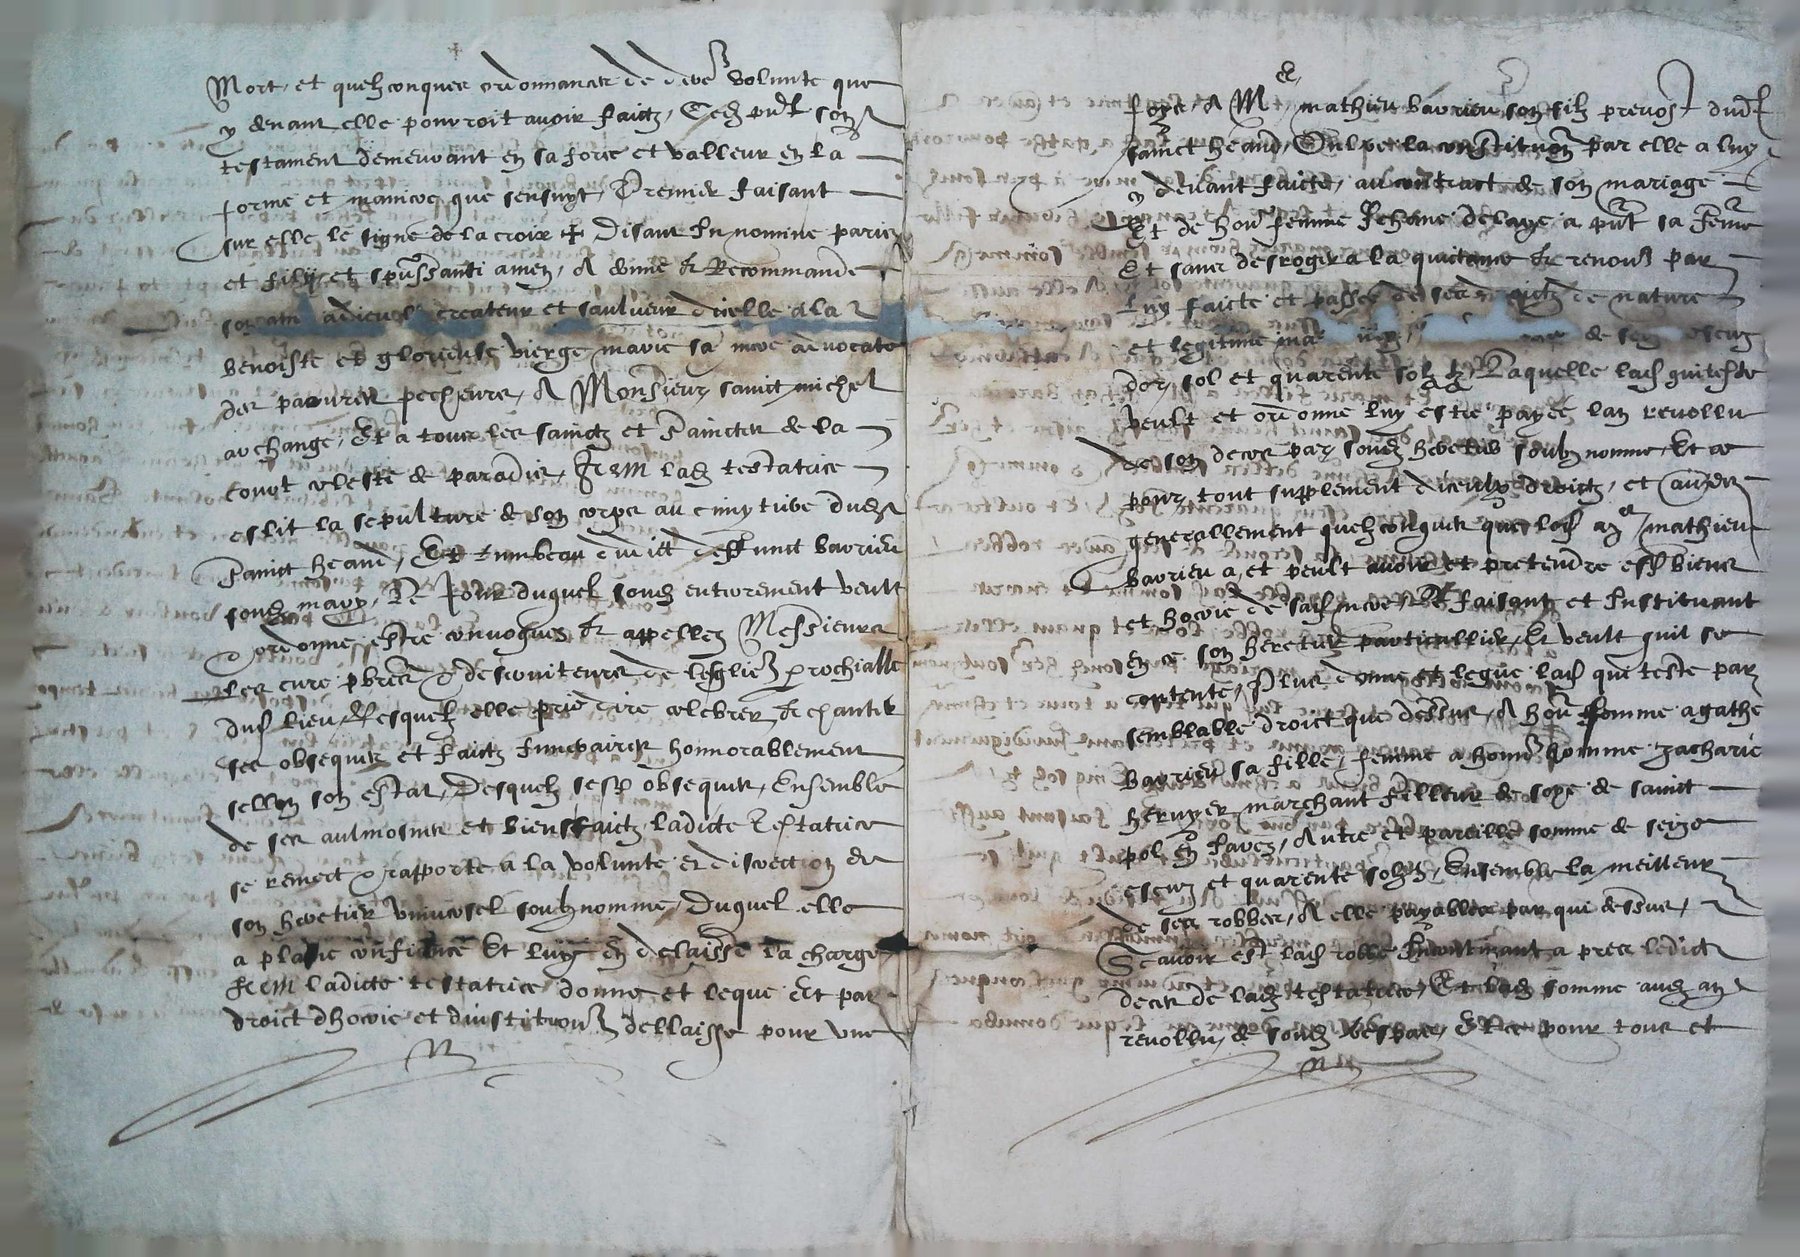 Mort, et quelzconques ordonnances de dere volunte que
y devant elle pourroit avoir faictz, son
testament demeurant en sa force et valleur en la
forme et maniere que sensuyt, Premier faisant
sur elle le signe de la croix + Disant In nomine patris
et filij et spûssancti amen, A donne et Recommande
son ame a dieu le createur et saulveur dicelle a la
benoiste et glorieuse vierge marie sa mere advocate
des paovres pecheurs, A Monsieur sainct michel
archange, Et a tous les sainctz et sainctes de la
court celeste de paradis, Item lad testatrice
eslit la sepulture de son corps au cimytiere dud
sainct heand, Et tumbeau dudict deffunct barrieu
sond mary, Le Jour duquel sond enterrement veult
et ordonne estre convoques et appellez Messieurs
Les cure pbres et desserviteurs de leglise parrochialle
dud lieu, Lesquelz elle prie dire celebrer et chanter
ses obseques et faictz funeraires honnorablement
sellon son estat, Desquelz ses obseques, Ensemble
de ses aulmosnes et biensfaictz ladicte Testatrice
se remect et rapporte a la volunte et discrection de
son heretier universel soubznomme, Duquel elle
a plaine confience Et luy en delaisse la charge
Item ladicte testatrice donne et legue Et par
droict dhoirie et dinstitution dellaisse pour une
foys A Me mathieu barrieu son filz prevost dud
sainct heand, Oultre la constitution par elle a luy
y devant faicte, au contract de son mariage
Et de hon femme Jehane delaye a pnt sa feme
Et sans desroger a la quictance et renon par
luy faicte et passee de ses droictz de nature
et legitime escuz
dor sol et quarente solz tz, Laquelle lad quiteste
veult et ordonne luy estre payee lan revollu
de son deces par sond heretier soubznomme, Et ce
pour tout supplement diceulx droictz, et aultres
generallement quelzconques que led Me mathieu
barrieu a, et peult avoir et pretendre esd biens
et hoirie de sad mere, Le faisant et Instituant
en ce son heretier particullier, Et veult quil se
contente, Plus donne et legue lad qui teste par
semblable droict que dessus, A hon femme agathe
barrieu sa fille, femme a honn homme zacharie
heruyer marchant filleur de soye de sainct
pol en Jarez, Autre et pareille somme de seize
escuz et quarente solz tz, Ensemble la meilleur
de ses robbes, A elle payables par qui dessus,
Scavoir est lad robbe Incontinant apres ledict
deces de lad testatrice, Et lad somme aud an
revollu, de sond Et ce pour tous et